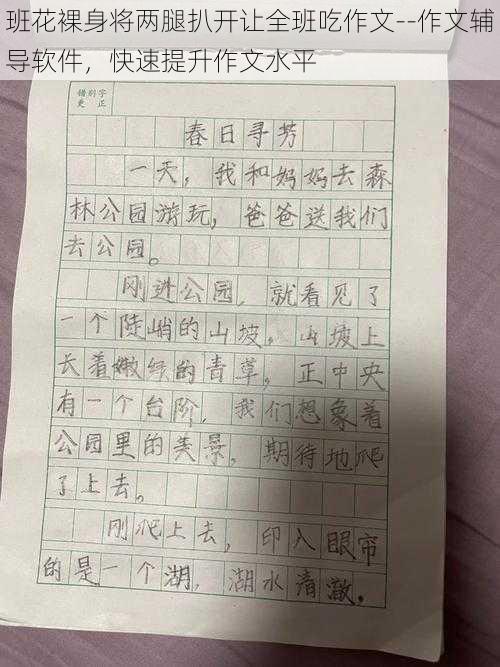 作文辅
导软件，快速提升作文水平
错别字
更 正
春日寻芳
一天，我和妈妈去森
林公园游玩，爸爸送我们
去公园。
刚进公园，就看见了
一个陡峭的山坡，山坡上
长着嫩绿的青草，正中央
有一个台阶，我们想象着
公园里的美景，期待地爬
了上去。
刚爬上去，印入眼帘
的是一个湖，湖水清澈，